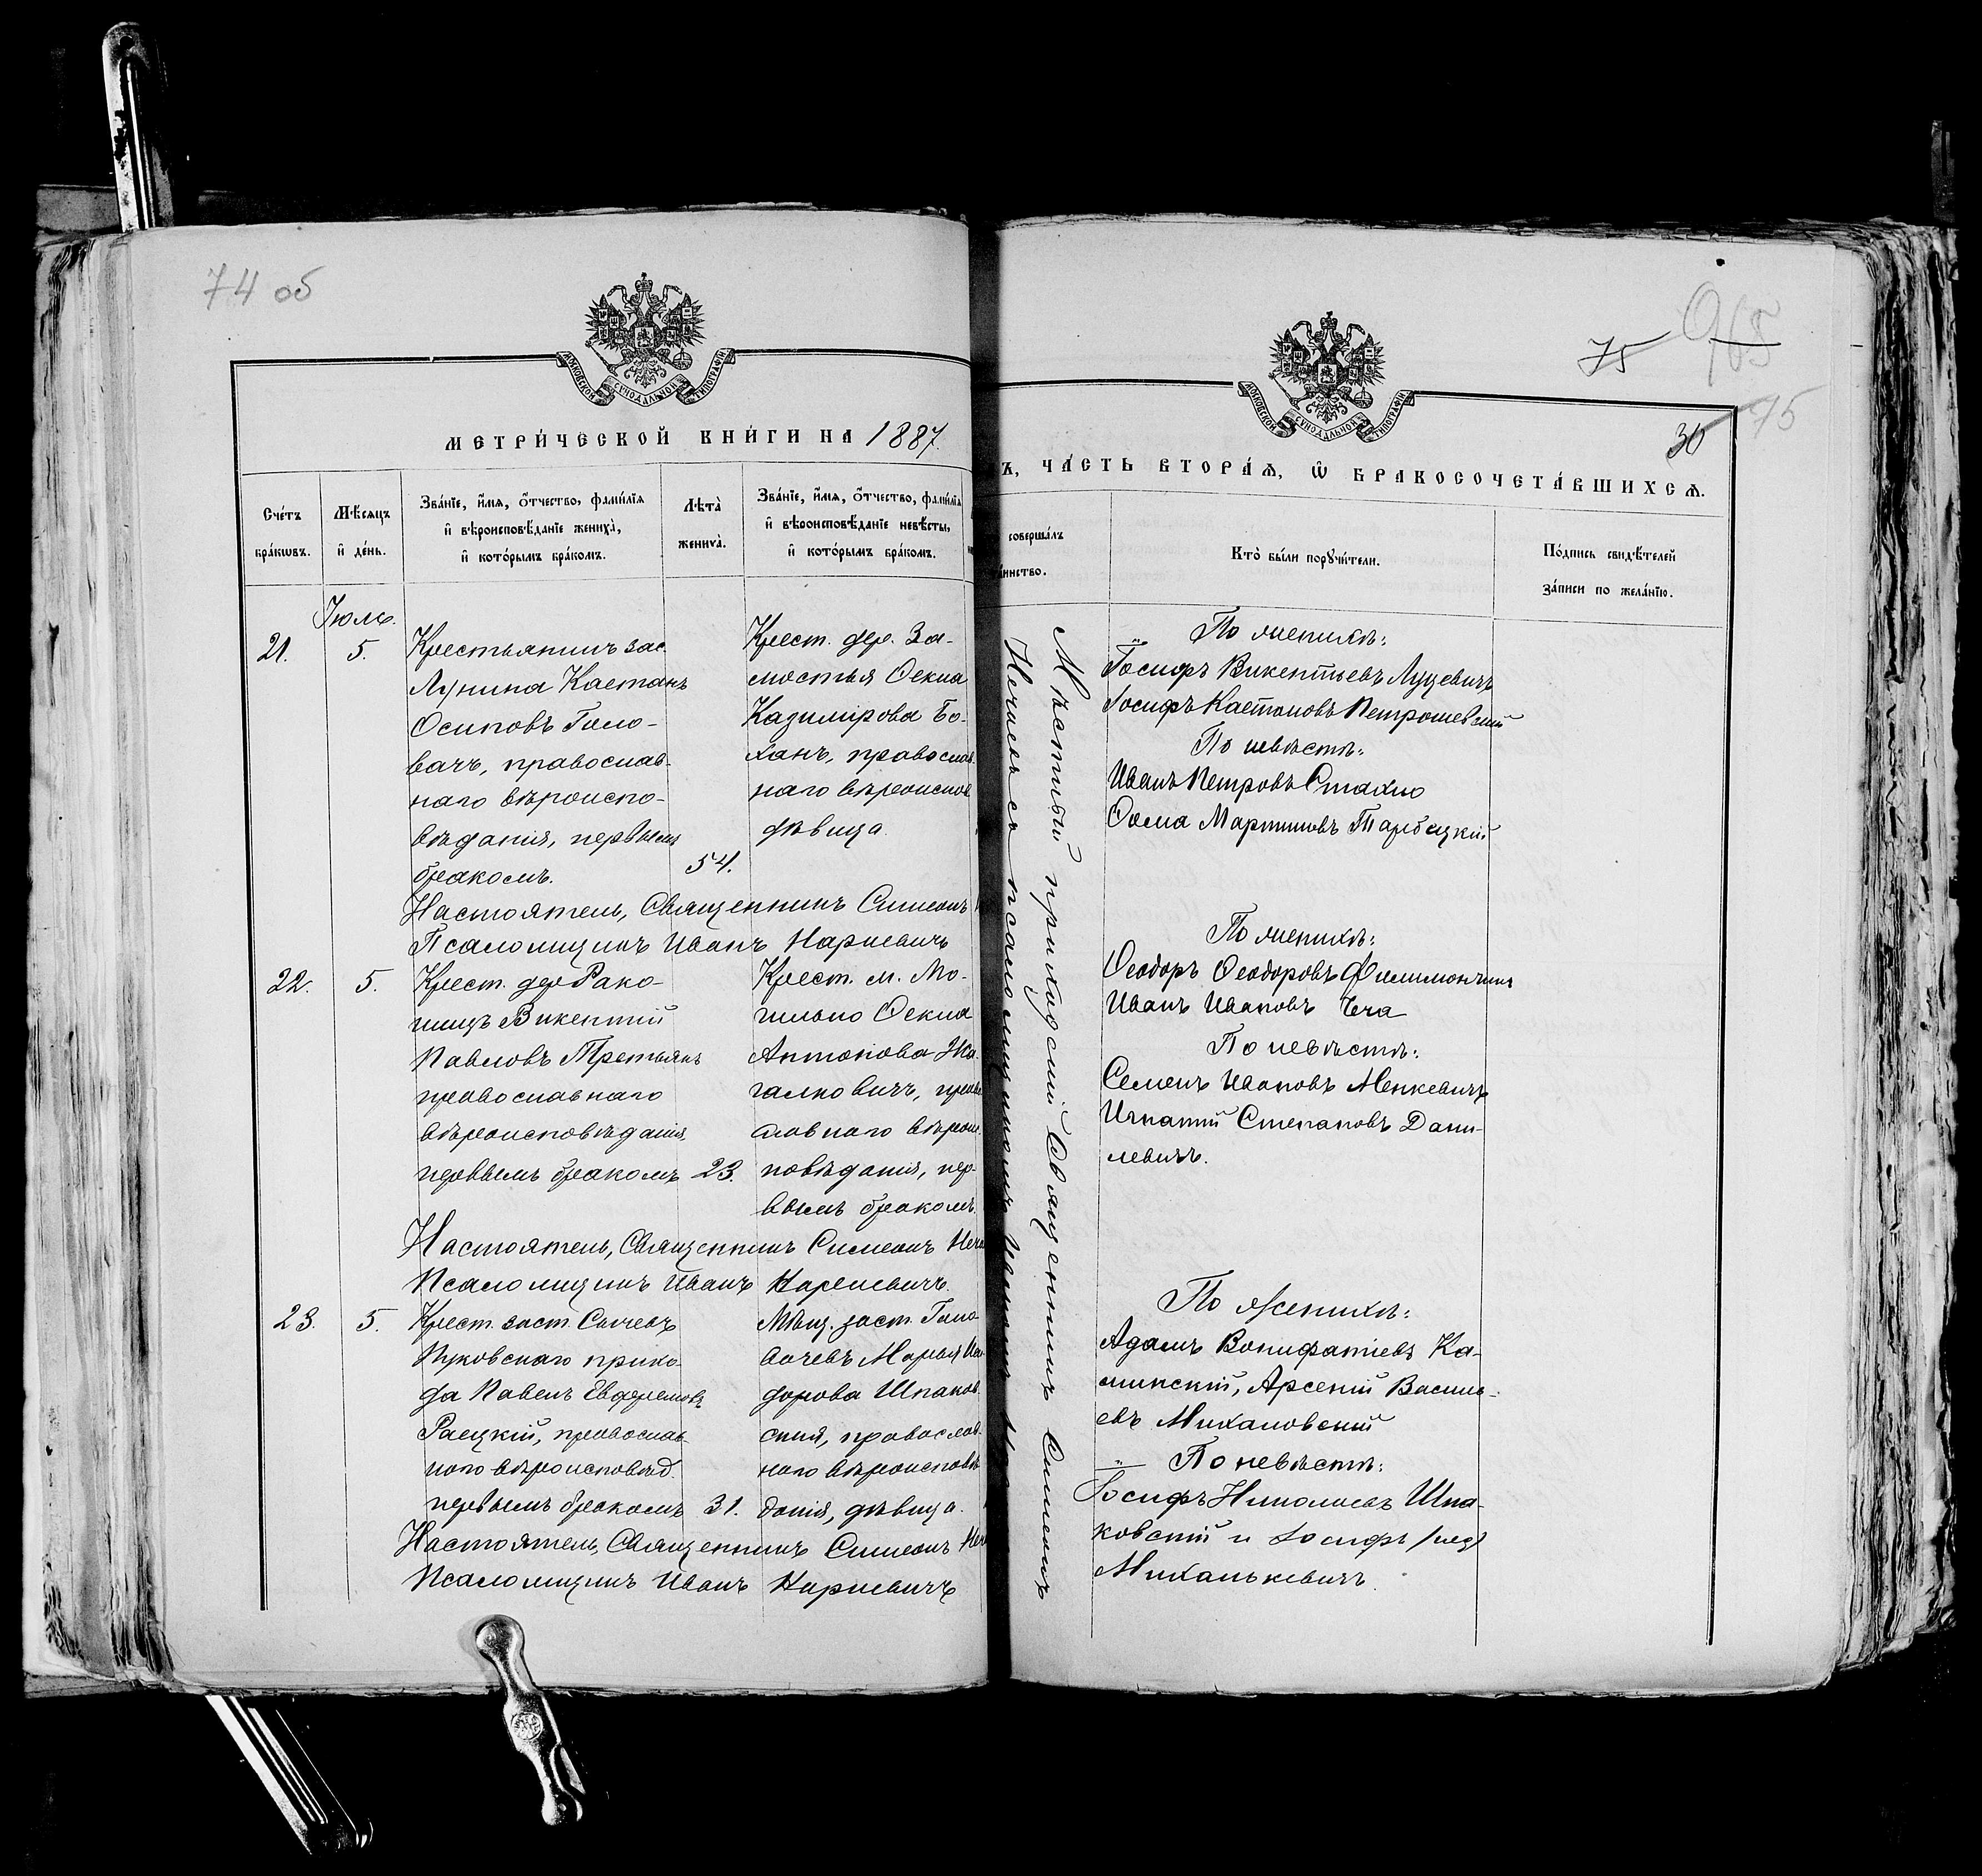 74 об
МОСКОВСКОЙ СѴНОДАЛЬНОЙ ТИПОГРАФІИ
МЕТРИ́ЧЕСКОЙ КНИ́ГИ НА 1887.
Сче́тъ бра́кѡвъ.
Мѣ́сяцъ и҆ де́нь.
Зва́нїе, и҆́мя, ѻ҆́тчество, фами́лїя и҆ вѣроисповѣ́данїе жениха̀, и҆ кото́рымъ бра́комъ.
Лѣта̀ жениха̀.
Зва́нїе, и҆́мя, ѻ҆́тчество, фами́лїя и҆ вѣроисповѣ́данїе невѣ́сты, и҆ кото́рымъ бра́комъ.
Іюль.
21.
5.
Крестьянинъ зас.
Лунина Каетанъ
Осиповъ Голо-
вачъ, православ-
наго вѣроиспо-
вѣданія, первымъ
бракомъ.
54.
Крест. дер. За-
мостья Ѳекла
Казимірова Бо-
ханъ, православ.
наго вѣроиспов
дѣвица.
Настоятель, Священникъ Симеонъ
Псаломщикъ Иванъ Наркевичъ
22.
5.
Крест. дер Рако-
вицъ Викентій
Павловъ Третьякъ
православнаго
вѣроисповѣданія,
первымъ бракомъ
23.
Крест. м. Мо-
гильно Ѳекла
Антонова Жи-
галковичъ, прав
славнаго вѣроис
повѣданія, пер-
вымъ бракомъ.
Настоятель, Священникъ Симеонъ Неч
Псаломщикъ Иванъ Наркевичъ.
23.
5.
Крест. заст. Сычевъ
Пуковскаго прихо-
да Павелъ Евфремовъ
Раецкій, православ-
наго вѣроисповѣд.
первымъ бракомъ
31.
Мѣщ. заст. Голо-
вачевъ Марья Иси
дорова Шпаков-
ская, православ-
наго вѣроисповѣ
данія, дѣвица.
Настоятель, Священникъ Симеонъ Неч
Псаломщикъ Иванъ Наркевичъ
75
965
75
30
МОСКОВСКОЙ СѴНОДАЛЬНОЙ ТИПОГРАФІИ
Ъ, ЧА́СТЬ ВТОРА́Я, Ѽ БРАКОСОЧЕТА́ВШИХСЯ.
соверша́лъ та́инство.
Кто̀ бы́ли порꙋчи́тели.
По́дпись свидѣ́телей за́писи по жела́нїю.
Мѣстный приходскій Священникъ Симеонъ
съ псаломщикомъ Иваномъ
По женихѣ:
Іосифъ Викентьевъ Луцевичъ
Іосифъ Каетановъ Петрошевскій
По невѣстѣ:
Иванъ Петровъ Стахно
Ѳома Мартиновъ Тарбецкій
По женихѣ:
Ѳеодоръ Ѳеодоровъ Филимончикъ
Иванъ Ивановъ Чеча
По невѣстѣ:
Семенъ Ивановъ Менкевичъ
Игнатій Степановъ Дани-
левичъ.
По женихѣ:
Адамъ Вонифатіевъ Ка-
минскій, Арсеній Василь-
евъ Михаловскій
По невѣстѣ:
Іосифъ Николаевъ Шпа-
ковскій и Іосифъ
Миханькевичъ.